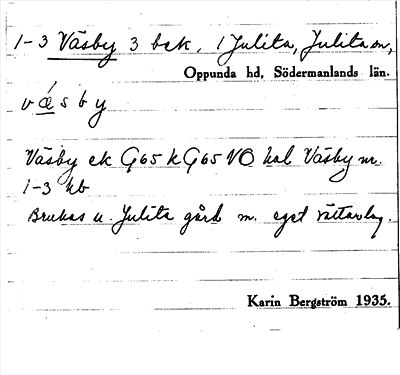 1-3 Väsby 3 bek. i Julita, Julita sn,
Oppunda hd, Södermanlands län.
vǽsby
Väsby ek G65 k G65 VO hal Väsby nr.
1-3 kb
Brukas u. Julita gård m. eget rättarlag.
Karin Bergström 1935.